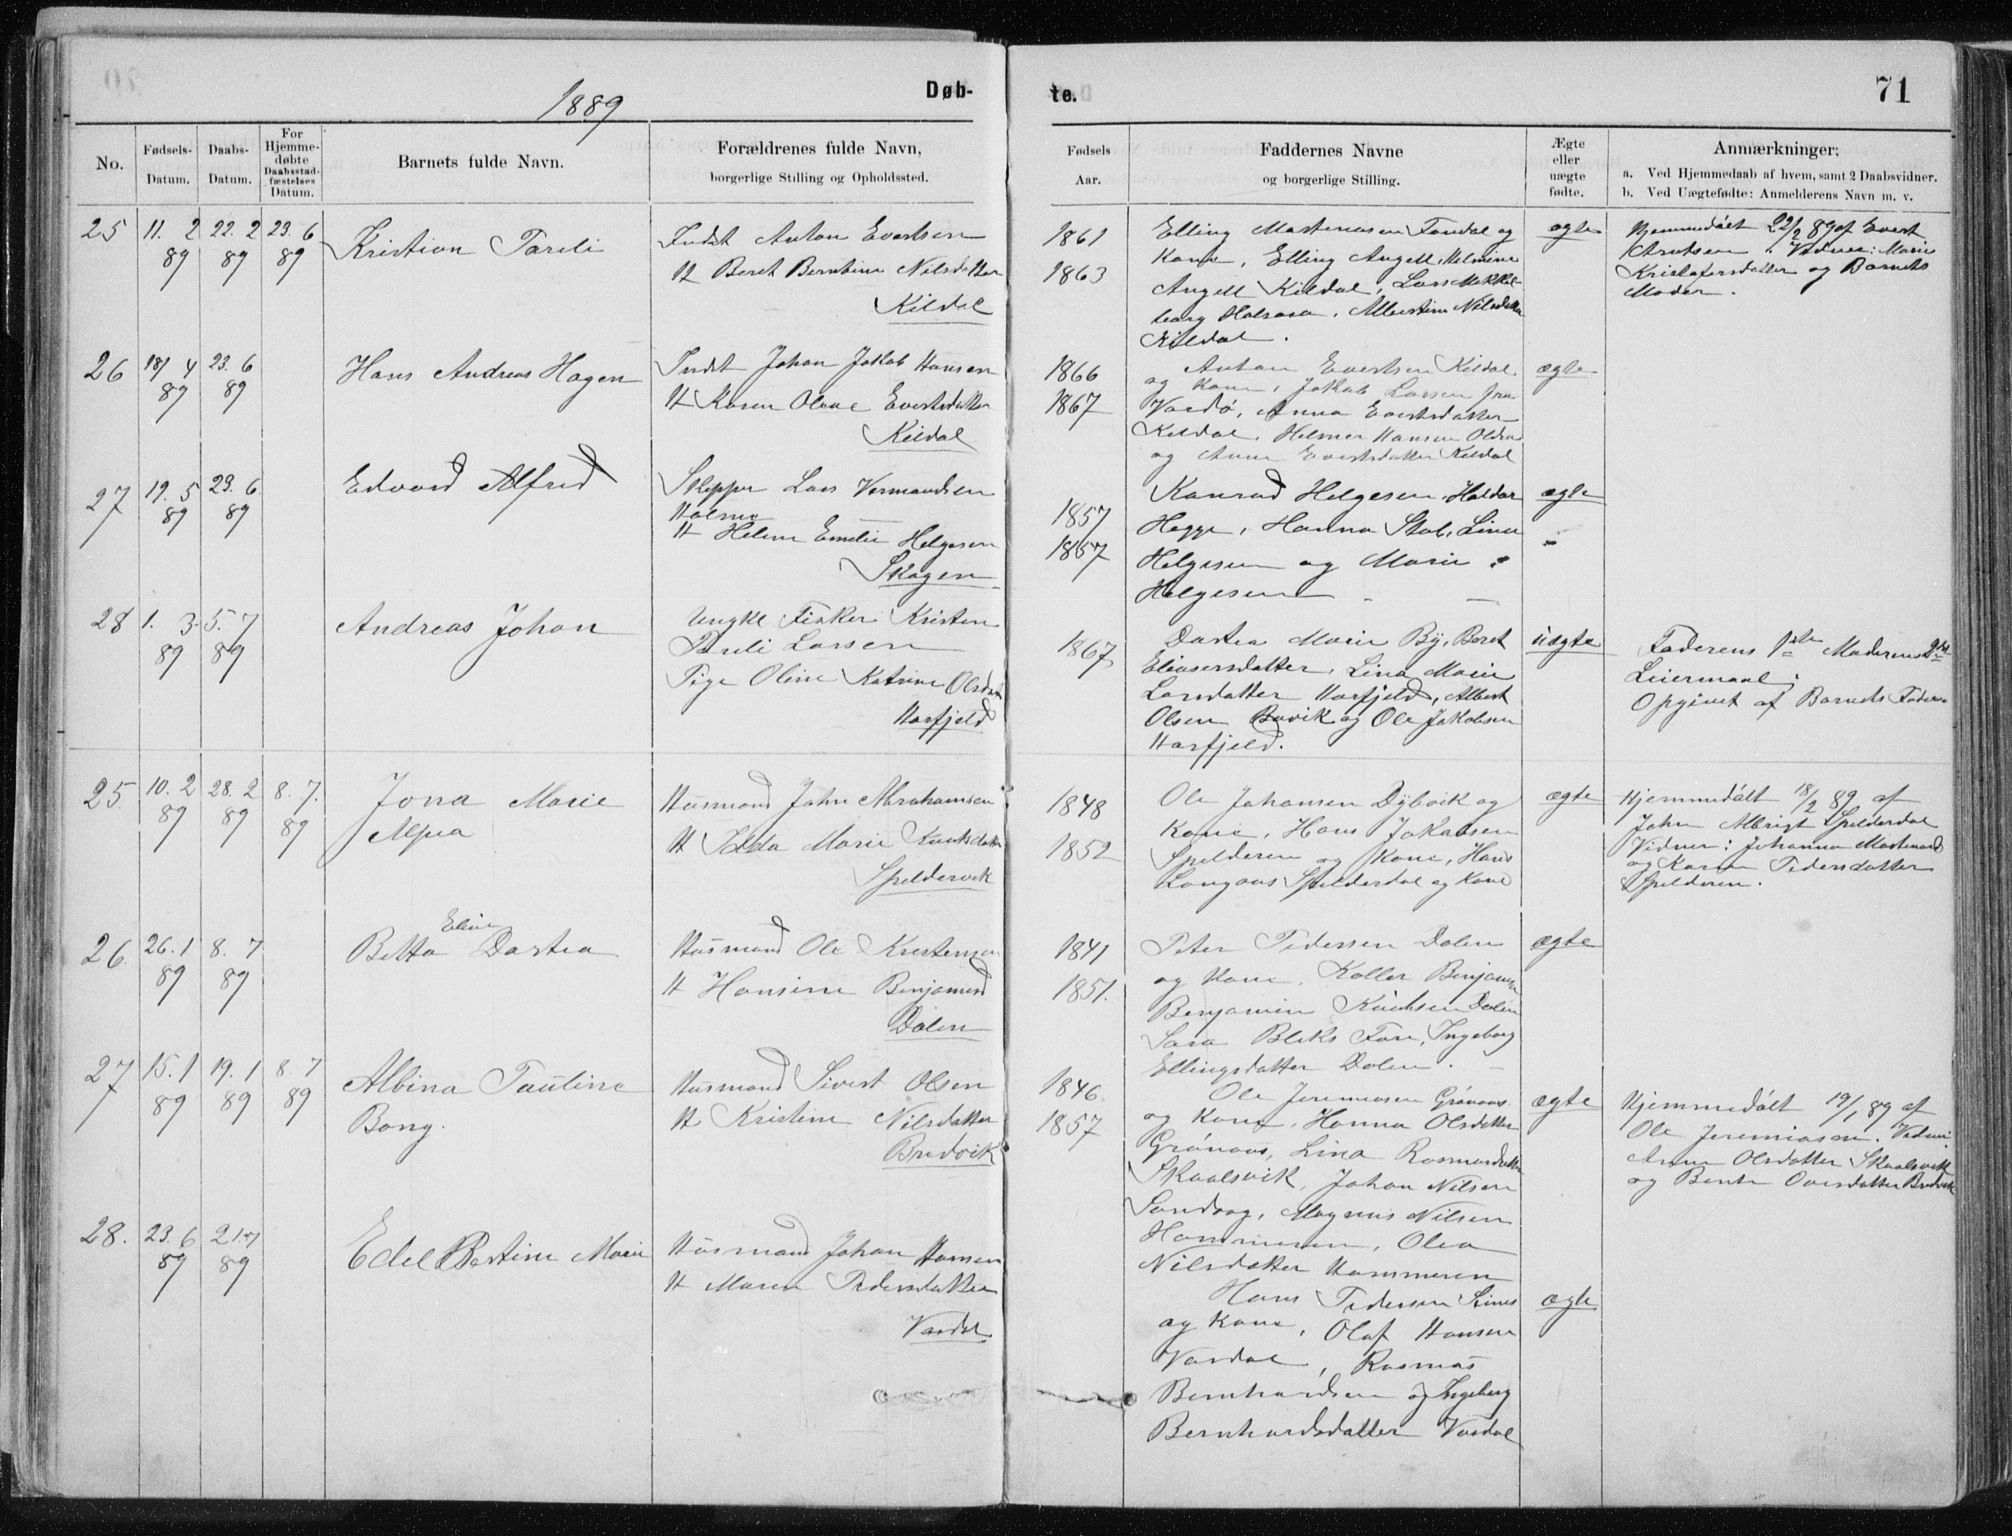 1889
Døb-
te.
71
No.
Fødsels-
Datum.
Daabs-
Datum.
For
Hjemme-
døbte
Daabsstad-
fæstelses
Datum.
Barnets fulde Navn.
Forældrenes fulde Navn,
borgerlige Stilling og Opholdssted.
Fødsels
Aar.
Faddernes Navne
og borgerlige Stilling.
Ægte
eller
uægte
fødte.
Anmærkninger;
a. Ved Hjemmedaab af hvem, samt 2 Daabsvidner.
b. Ved Uægtefødte: Anmelderens Navn m. v.
25 11. 2 22. 2 23. 6
89 89 89
Kristian Pareli
Indst Anton Evertsen
H Beret Berntine Nilsdatter
Kildal
1861
1863
Elling Mortensen Fondal og
Kone, Elling Angell, Helmine
Angell Kildal, Lars Mekkel-
borg Halsaoa, Albertine Nilsdatter
Kildal.
ægte
Hjemmedøbt 22/2 89 af Evert
Arntsen. Vidner: Marie
Kristofersdatter og Barnets
Moder.
26 18/ 4 23. 6
89 89
Hans Andreas Hagen
Indst Johan Jakob Hansen
H Karen Olava Evertsdatter
Kildal
1866
1867
Anton Evertsen Kildal
og Kone, Jakob Larsen fra
Vardø, Anna Evertsdatter
Kildal, Helmer Hansen
og Anne Evertsdatter Kildal
ægte
27 19. 5 23. 6
89 89
Edvard Alfred
Skipper Lars Normandsen
Holme
H Helene Emelie Helgesen
Skagen
1857
1857
Konrad Helgesen, Haldor
Hegge, Hanna Stob, Lina
Helgesen og Marie
Helgesen
ægte
28 1. 3 5. 7
89 89
Andreas Johan
Ungkl Fisker Kristen
Pareli Larsen
Pige Oline Katrine Olsdatter
Harfjeld
1867
Dortea Marie By, Beret
Eliasersdatter, Lina Marie
Larsdatter Harfjeld, Albert
Olsen Buvik og Ole Jakobsen
Harfjeld.
uægte
Faderens 1ste Moderens 2det
Leiermaal;
Opgivet af Barnets Fader.
25. 10. 2 28. 2 8. 7.
89 89 89
Jona Marie
Alpea
Husmand John Abrahamsen
H Ida Marie Knutsdatter
Spildervik
1848
1852
Ole Johansen Dybvik og
Kone, Hans Jakobsen
Spilderen og Kone, Hans
Langaas Spilderdal og Kone
ægte
Hjemmedøbt 18/2 89 af
John Albrigt Spilderdal
Vidner: Johanna Martinusd
og Karen Pedersdatter
Spilderen.
26. 26. 1 8. 7
89 89
Betta Eline Dortea
Husmand Ole Kristensen
H Hansine Benjamind
Dalen
1841
1851.
Peter Pedersen Dalen
og Kone, Koller Benjamin
Benjamin Knudsen Dalen
Sara Bleks Fore, Ingeborg
Ellingsdatter Dalen.
ægte
27 15. 1 19. 1 8. 7
89 89 89
Albina Pauline
Borg.
Husmand Sivert Olsen
H Kristine Nilsdatter
Bredvik
1846.
1857
Ole Jeremiasen Grønaas
og Kone, Hanna Olsdatter
Grønaas, Lina Rasmusdatter
Skaalsvik, Johan Nilsen
Sandvag, Magnus Nilsen
Hammeren, Olea
Nilsdatter Hammeren
ægte
Hjemmedøbt 19/1 89 af
Ole Jeremiasen. Vidner
Anne Olsdatter Skaalsvik
og Bente Olsdatter Bredvik
28. 23. 6 21. 7
89 89
Edel Bertine Marie
Husmand Johan Hansen
H Maren Pedersdatter
Vardal
Hans Pedersen
og Kone, Olaf Hansen
Vardal, Rasmus
Bernhardsen og Ingeborg
Bernhardsdatter Vardal
ægte